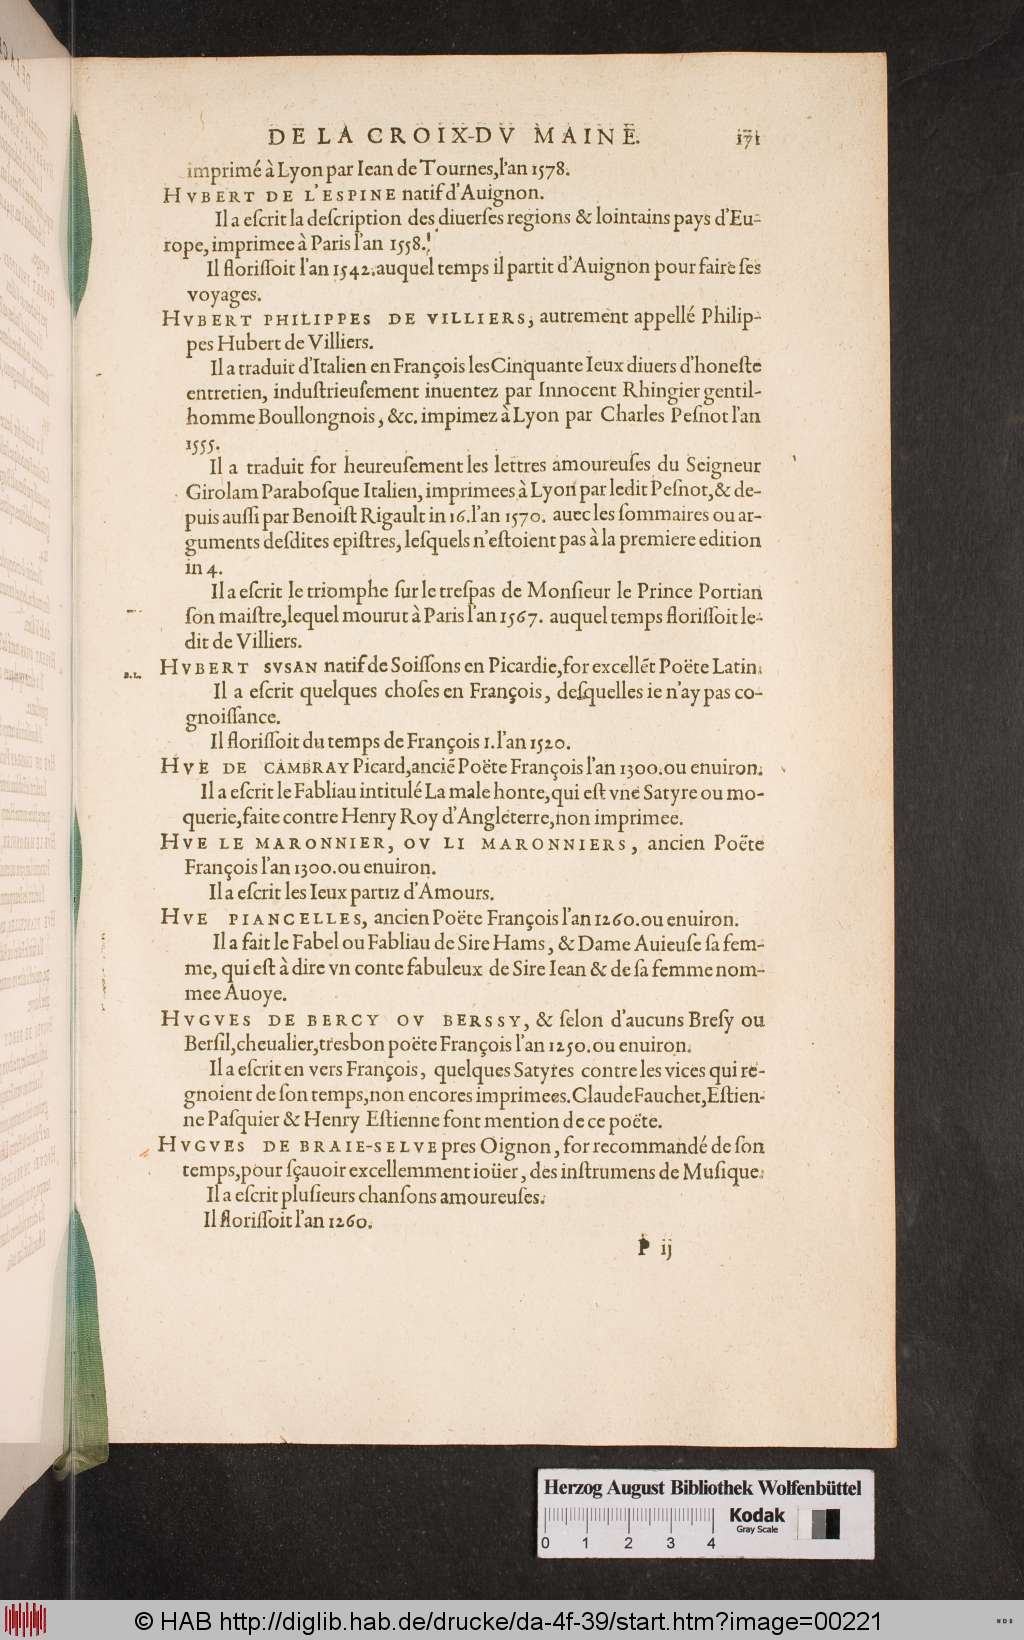 DE LA CROIX-DV MAINE. 171
imprimé à Lyon par Iean de Tournes, l'an 1578.
HVBERT DE L'ESPINE natif d'Auignon.
Il a eſcrit la deſcription des diuerſes regions & lointains pays d'Eu-
rope, imprimee à Paris l'an 1558.
Il floriſſoit l'an 1542. auquel temps il partit d'Auignon pour faire ſes
voyages.
HVBERT PHILIPPES DE VILLIERS, autrement appellé Philip-
pes Hubert de Villiers.
Il a traduit d'Italien en François les Cinquante Ieux diuers d'honeſte
entretien, induſtrieuſement inuentez par Innocent Rhingier gentil-
homme Boullongnois, &c. impimez à Lyon par Charles Peſnot l'an
1555.
Il a traduit for heureuſement les lettres amoureuſes du Seigneur
Girolam Paraboſque Italien, imprimees à Lyon par ledit Peſnot, & de-
puis auſſi par Benoiſt Rigault in 16. l'an 1570. auec les ſommaires ou ar-
guments deſdites epiſtres, leſquels n'eſtoient pas à la premiere edition
in 4.
Il a eſcrit le triomphe ſur le treſpas de Monſieur le Prince Portian
ſon maiſtre, lequel mourut à Paris l'an 1567. auquel temps floriſſoit le-
dit de Villiers.
B.L. HVBERT SVSAN natif de Soiſſons en Picardie, for excellẽt Poëte Latin.
Il a eſcrit quelques choſes en François, deſquelles ie n'ay pas co-
gnoiſſance.
Il floriſſoit du temps de François I. l'an 1520.
HVE DE CAMBRAY Picard, anciẽ Poëte François l'an 1300. ou enuiron.
Il a eſcrit le Fabliau intitulé La male honte, qui eſt vne Satyre ou mo-
querie, faite contre Henry Roy d'Angleterre, non imprimee.
HVE LE MARONNIER, OV LI MARONNIERS, ancien Poëte
François l'an 1300. ou enuiron.
Il a eſcrit les Ieux partiz d'Amours.
HVE PIANCELLES, ancien Poëte François l'an 1260. ou enuiron.
Il a fait le Fabel ou Fabliau de Sire Hams, & Dame Auieuſe ſa fem-
me, qui eſt à dire vn conte fabuleux de Sire Iean & de ſa femme nom-
mee Auoye.
HVGVES DE BERCY OV BERSSY, & ſelon d'aucuns Breſy ou
Berſil, cheualier, tresbon poëte François l'an 1250. ou enuiron.
Il a eſcrit en vers François, quelques Satyres contre les vices qui re-
gnoient de ſon temps, non encores imprimees. Claude Fauchet, Eſtien-
ne Paſquier & Henry Eſtienne font mention de ce poëte.
HVGVES DE BRAIE-SELVE pres Oignon, for recommandé de ſon
temps, pour ſçauoir excellemment ioüer, des inſtrumens de Muſique.
Il a eſcrit pluſieurs chanſons amoureuſes.
Il floriſſoit l'an 1260.
P ij
Herzog August Bibliothek Wolfenbüttel
Kodak
Gray Scale
0 1 2 3 4
© HAB http://diglib.hab.de/drucke/da-4f-39/start.htm?image=00221